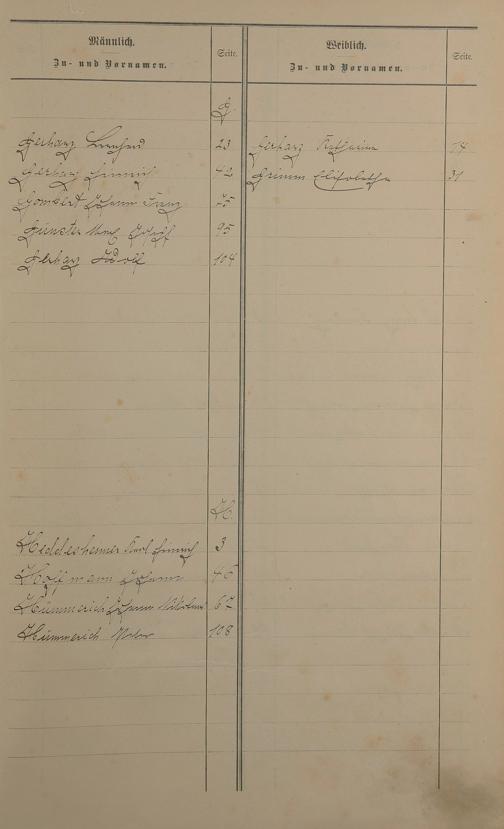 Männlich.
Zu- und Vornamen.
Seite.
Weiblich.
Zu- und Vornamen.
Seite.
G.
Gerharz Bernhard 23
Gerharz Katharina 14
Gerharz Heinrich 42
Grimm Elisabetha 31
Gombert Johann Franz 75
Günster Adolf 95
Gerharz Adolf 104
H.
Heddesheimer Karl Heinrich 3
Hoffmann Johann 46
Hümmerich Johann Nikolaus 67
Hümmerich Peter 108